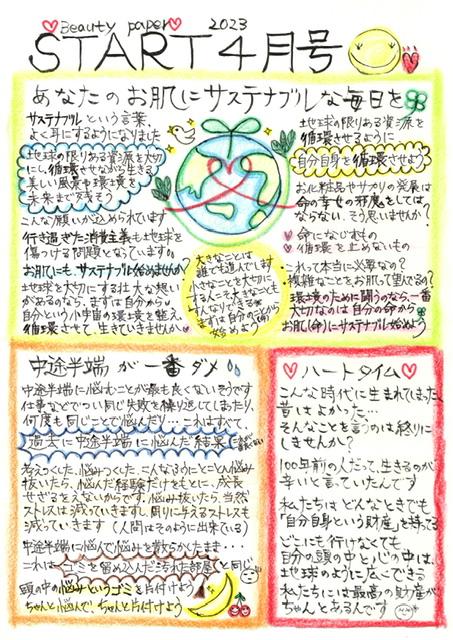 Beauty paper 2023
START4月号
あなたのお肌にサステナブルな毎日を
サステナブルという言葉、
よく耳にするようになりました
地球の限りある資源を大切
にし、循環させながら生きる
美しい風景や環境を
未来まで残そう
こんな願いが込められています
行き過ぎた消費主義も地球を
傷つける問題となっています。
お肌にも、サステナブル始めませんか?
地球を大切にする壮大な想い
があるのなら、まずは自分から
自分という小宇宙の環境を整え、
循環させて、生きていきませんか
大きなことは
誰でも進んでします
小さなことを大切に
する人こそ大きなことも
まずは自分の肌から
始めよう
地球の限りある資源を
循環させるように
自分自身を循環させよう
お化粧品やサカリの発展は
命の幸せの邪魔をしては
ならない、そう思いませんか?
命になじむもの
循環を止めないもの
これって本当に必要なの?
複雑なことをお肌って望んでるの?
環境のために闘うのなら、一番
大切なのは自分の命から
お肌(命)にサステナブル始めよう
中途半端が一番ダメ
中途半端に悩むことが最も良くないそうです
仕事などでつい同じ失敗を繰り返してしまったり、
何度も同じことで悩んだり…これはすべて、
過去に中途半端に悩んだ結果
考えつくした、悩みつくした、こんなふうにとことん悩み
抜いたら、悩んだ経験だけをもとに、成長
せざるをえないからです。悩み抜いたら、当然
ストレスは減っていきますし、周りに与えるストレスも
減っていきます(人間はそのように出来ている)
中途半端に悩んで悩みを散らかしたまま…
これはゴミを留め込んだ汚れた部屋と同じ
頭の中の悩みというゴミを片付けよう
ちゃんと悩んで、ちゃんと片付けよう
ハートタイム
こんな時代に生まれてしまった、
昔はよかった…
そんなことを言うのは終りに
しませんか?
100年前の人だって、生きるのが
辛いと言っていたんです
私たちはどんなときでも
「自分自身という財産」を持ってる
どこにも行けなくても
自分の頭の中と心の中は、
地球のように広くできる
私たちには最高の財産が
ちゃんとあるんです